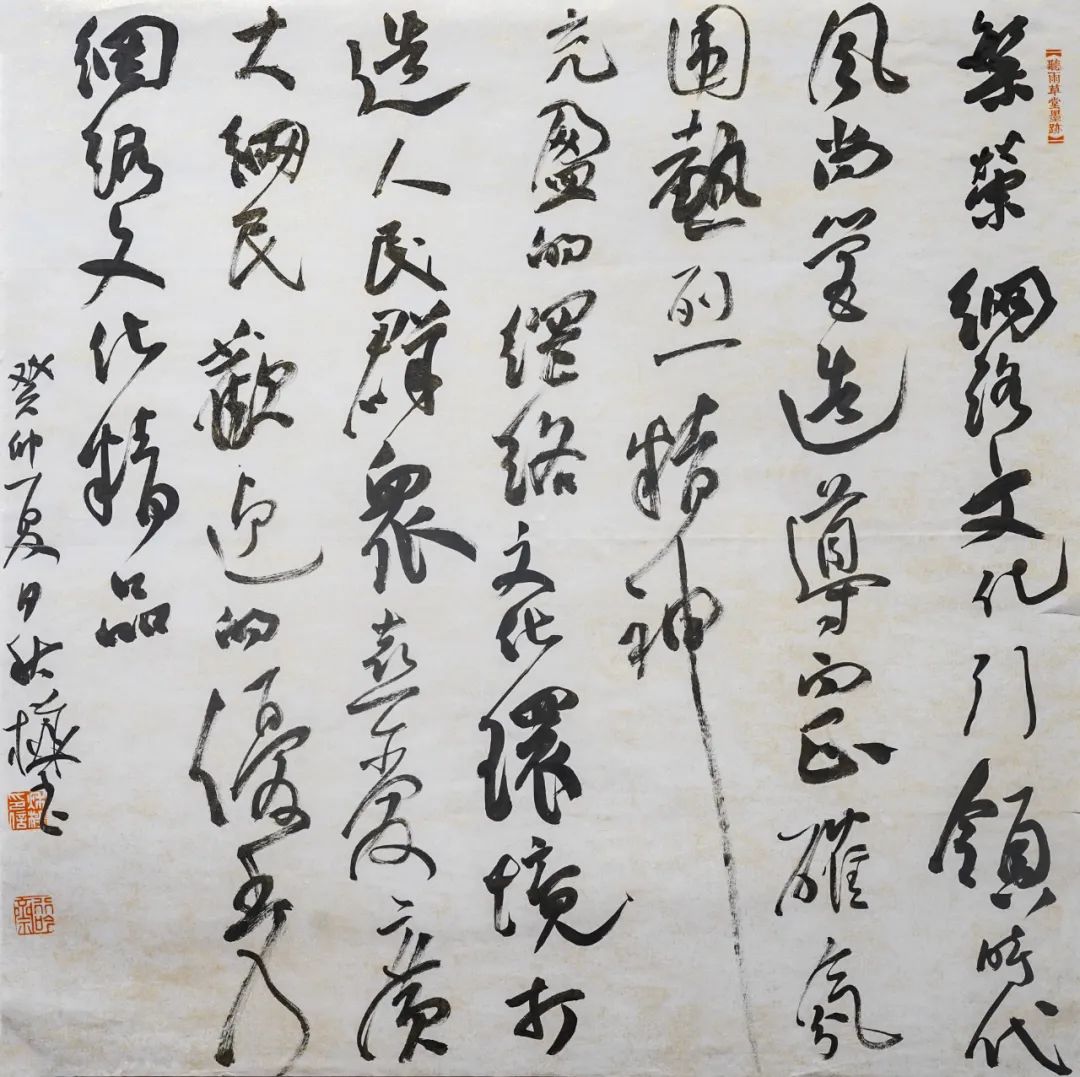 【聽雨草堂墨跡】
繁榮網络文化引領時代
風尚營造導向正確氛
围熱烈精神
充盈的網络文化環境打
造人民群衆喜愛廣
大網民歡迎的優秀
網络文化精品
癸卯夏日秋